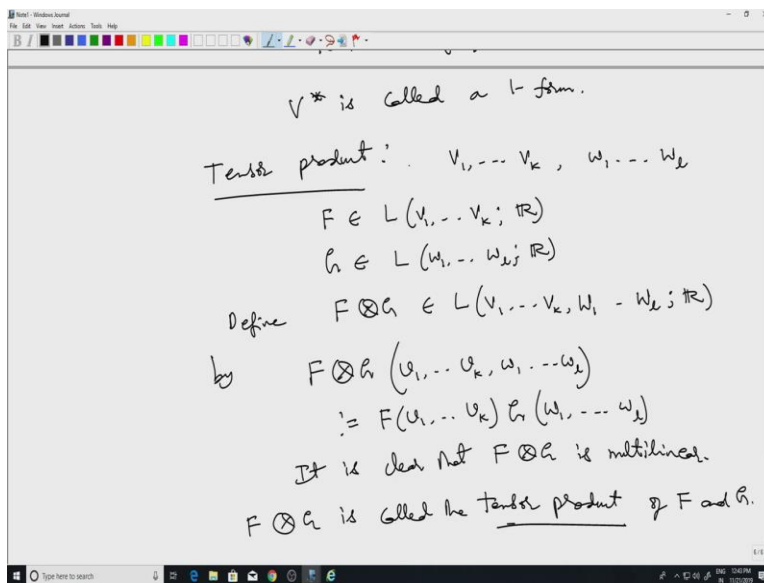 Note1 - Windows Journal
File Edit View Insert Actions Tools Help
V* is called a 1-form.
Tensor product: V₁, ... Vₖ, W₁ ... Wₗ
F ∈ L(V₁, .. Vₖ; ℝ)
G ∈ L(W₁, .. Wₗ; ℝ)
Define F⊗G ∈ L(V₁ ... Vₖ, W₁ .. Wₗ; ℝ)
by F⊗G (v₁, .. vₖ, w₁ ... wₗ)
:= F(v₁, .. vₖ) G(w₁, ... wₗ)
It is clear that F⊗G is multilinear.
F⊗G is called the tensor product of F and G.
6/6
Type here to search
ENG 12:40 PM
IN 11/21/2019